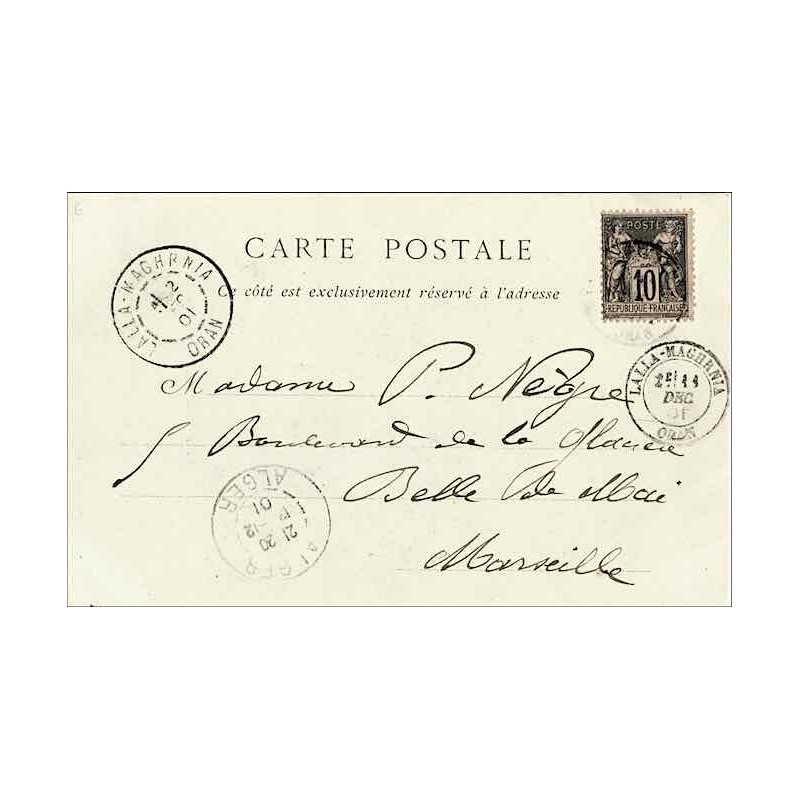 POSTE
10
RÉPUBLIQUE FRANÇAISE
CARTE POSTALE
Ce côté est exclusivement réservé à l'adresse
LALLA-MAGHRNIA
01
ORAN
ORAN
LALLA-MAGHRNIA
DEC
01
ORAN
Madame P. Nègre
5 Boulevard de la
Belle De Mai
Marseille
ALGER
21 20
-12
01
ALGER